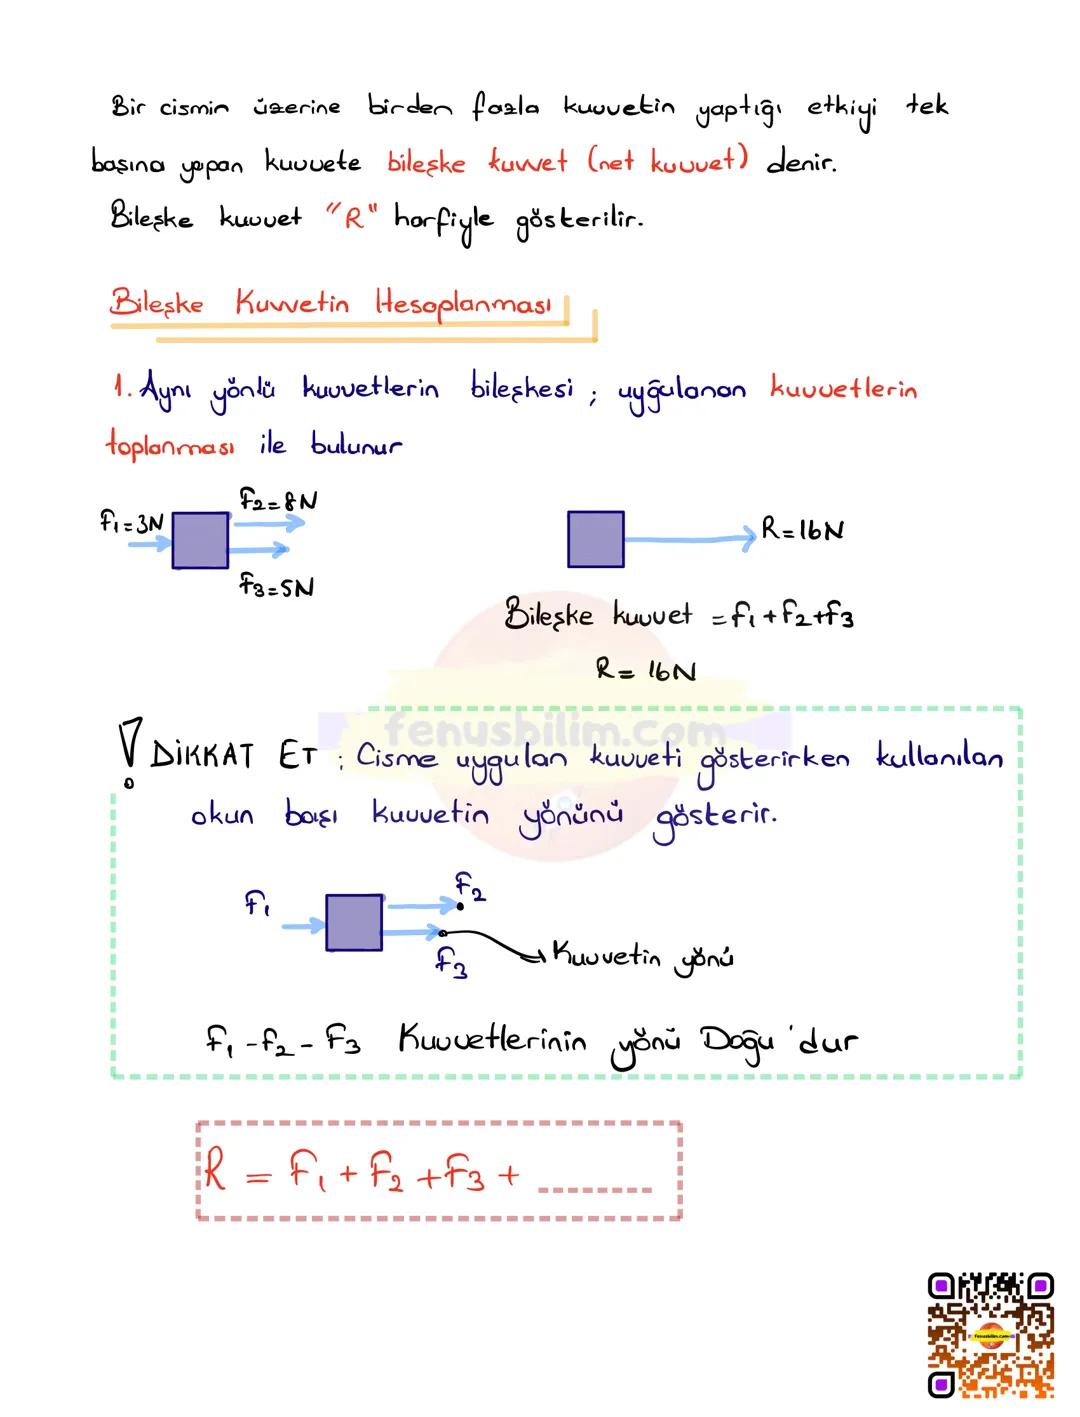 Bir cismin üzerine birden fazla kuvvetin yaptığı etkiyi tek
başına yapan kuvvete bileşke kuvvet (net kuvvet) denir.
Bileşke kuvvet "R" harfiyle gösterilir.
Bileşke Kuvvetin Hesaplanması
1. Aynı yönlü kuvvetlerin bileşkesi ; uyğulanan kuvvetlerin
toplanması ile bulunur
F₁=3N
F₂=8N
F₃=5N
R=16N
Bileşke kuvvet = F₁+F₂+F₃
R= 16N
fenusbilim.com
! DİKKAT ET ; Cisme uygulan kuvveti gösterirken kullanılan
okun başı kuvvetin yönünü gösterir.
F₁
F₂
F₃
Kuvvetin yönü
F₁ - F₂ - F₃ Kuvvetlerinin yönü Doğu'dur
R = F₁ + F₂ + F₃ + --------
Fenusbilim.com